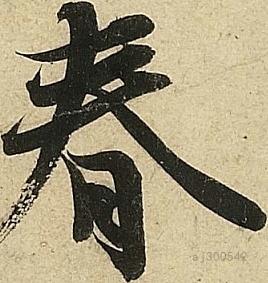 春
aj300542